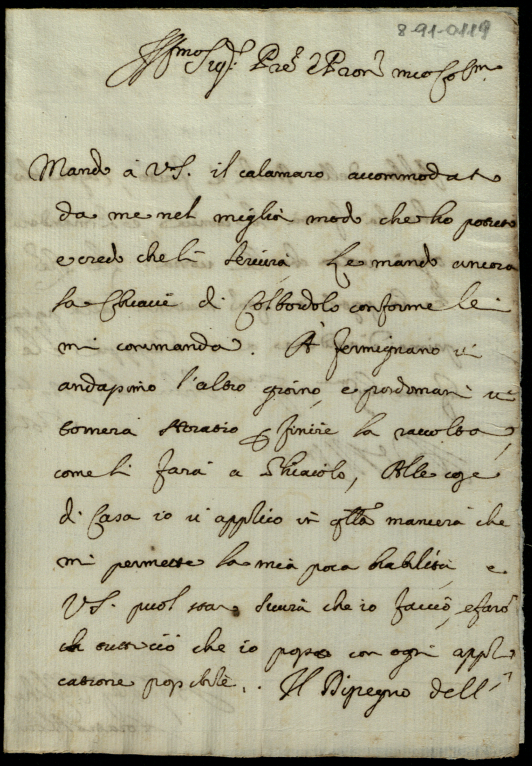 8-91-0119
Ill.mo Sig.r P.re e Pron. mio Col.mo
Mando à V.S. il calamaro accommodato
da me nel miglior modo che ho potuto
e credo che li servirà Le mando ancora
la Chiave di Colbordolo conforme lei
mi commanda. A Fermignano vi
andassimo l'altro giorno, e posdomani vi
tornerà Horatio p finire la raccolta,
come li farà a
di Casa io vi applico in q.lla maniera che
mi permette la mia poca habilità, e
V.S. puol star sicura che io faccio, e farò
tuttociò che io posso con ogni appli
catione possibile. Il Disegno dell'